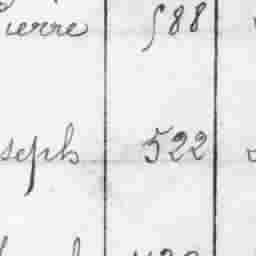 ierre 588
seph 522